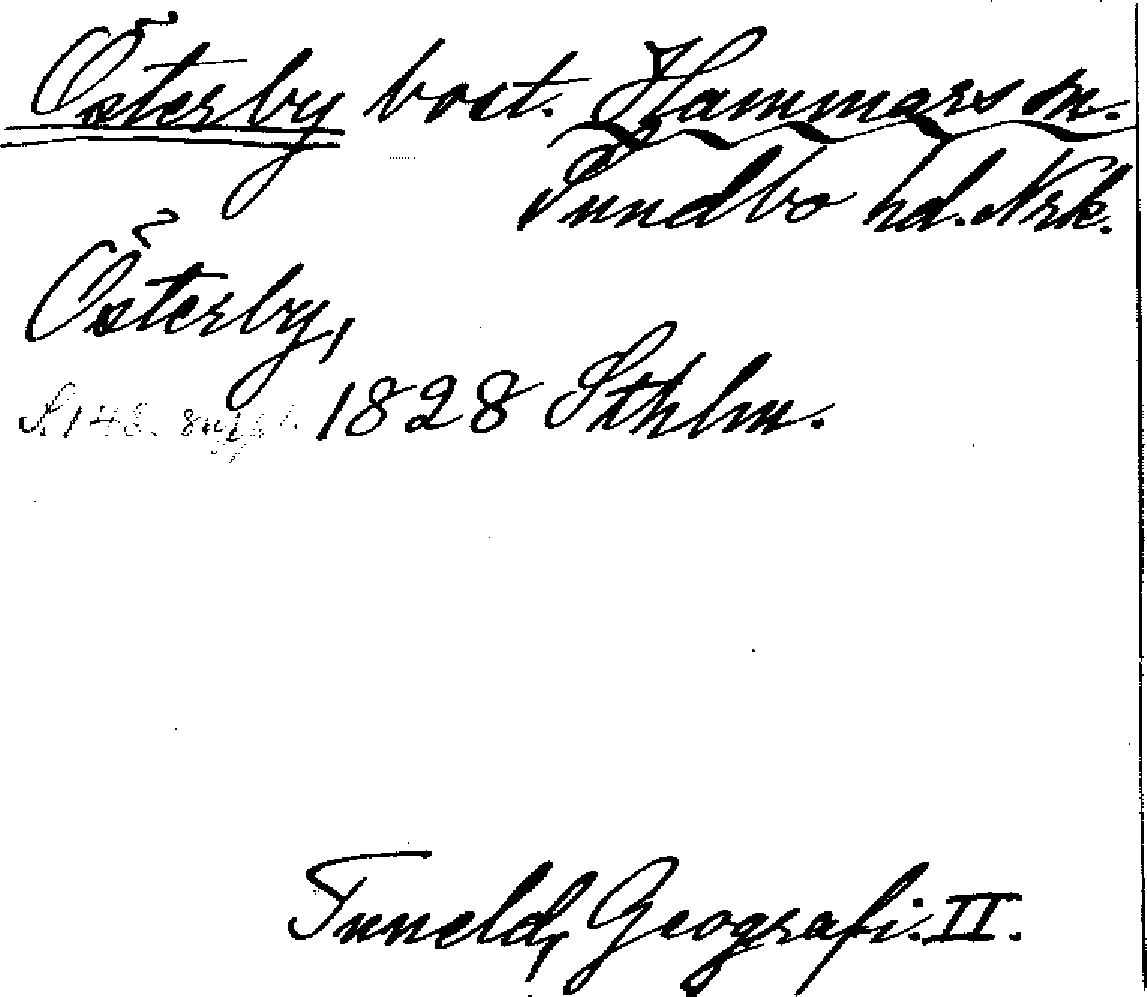 Österby bost. Hammars sn.
Sundbo hd. Nrk.
Österby,
1828 Sthlm.
Tuneld, Geografi. II.